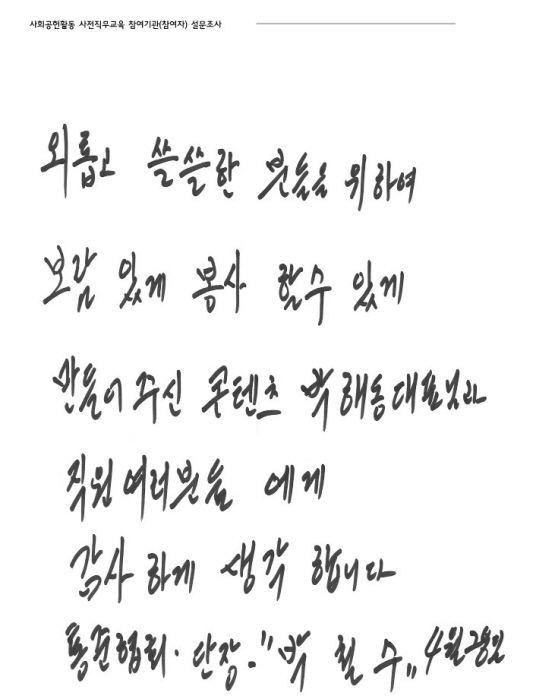 사회공헌활동 사전직무교육 참여기관(참여자) 설문조사
외롭고 쓸쓸한 분들을 위하여
보람 있게 봉사 할수 있게
만들어 주신 콘텐츠 박해동대표님과
직원여러분들 에게
감사 하게 생각 합니다
협회. 단장-"박 철 수" 4월